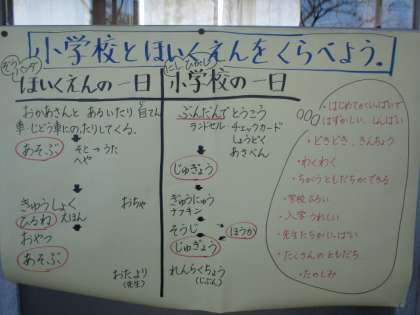 小学校とほいくえんをくらべよう。
ほいくえんの一日
おかあさんと あるいたり 自てん
車・じどう車にのったりしてくる。
あそぶ
そと→うた
へや
きゅうしょく
おちゃ
ひるね
えほん
おやつ
あそぶ
おたより
(先生)
にし ひがし
小学校の一日
ぶんだんでとうこう
ランドセル チェックカード
しょうどく
あさべん
じゅぎょう
ぎゅうにゅう
ナフキン
そうじ
ほうか
じゅぎょう
れんらくちょう
(じぶん)
・はじめてがいっぱいで
はずかしい、しんぱい
・どきどき、きんちょう
・わくわく
・ちがうともだちができる
・入学 うれしい
・先生たちがいっぱい
・たくさんのともだち
・たのしみ